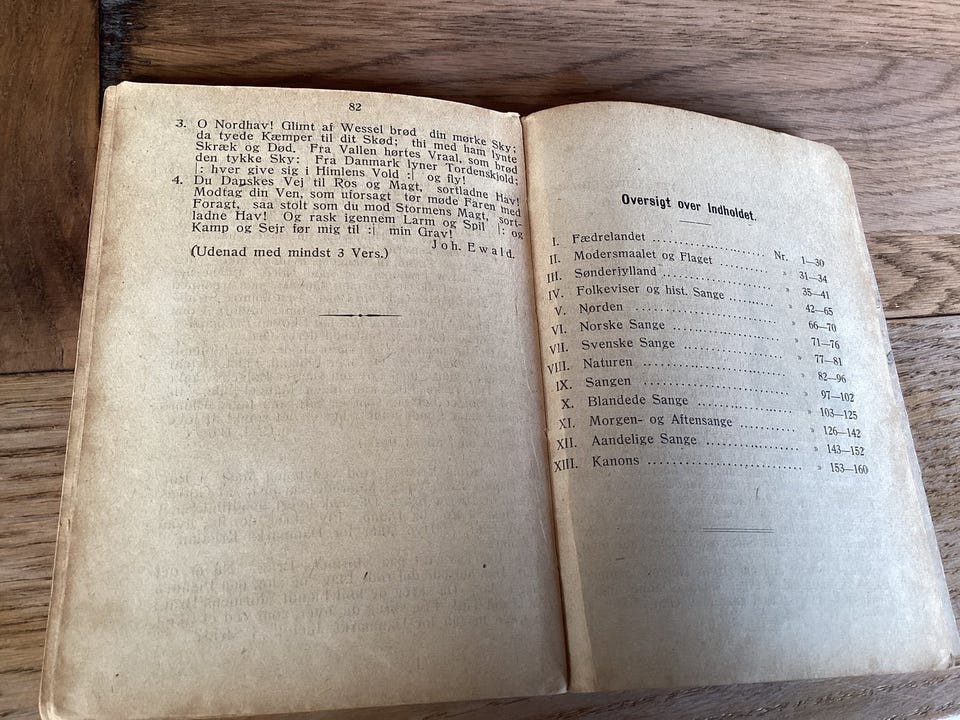 82
3. O Nordhav! Glimt af Wessel brød din mørke Sky;
da tyede Kæmper til dit Skød; thi med ham lynte
Skræk og Død. Fra Vallen hørtes Vraal, som brød
den tykke Sky: Fra Danmark lyner Tordenskjold;
|: hver give sig i Himlens Vold :| og fly!
4. Du Danskes Vej til Ros og Magt, sortladne Hav!
Modtag din Ven, som uforsagt tør møde Faren med
Foragt, saa stolt som du mod Stormens Magt, sort-
ladne Hav! Og rask igennem Larm og Spil |: og
Kamp og Sejr før mig til :| min Grav!
Joh. Ewald.
(Udenad med mindst 3 Vers.)
Oversigt over Indholdet.
I. Fædrelandet .......... Nr. 1—30
II. Modersmaalet og Flaget .......... » 31—34
III. Sønderjylland .......... » 35—41
IV. Folkeviser og hist. Sange .......... » 42—65
V. Nørden .......... » 66—70
VI. Norske Sange .......... » 71—76
VII. Svenske Sange .......... » 77—81
VIII. Naturen .......... » 82—96
IX. Sangen .......... » 97—102
X. Blandede Sange .......... » 103—125
XI. Morgen- og Aftensange .......... » 126—142
XII. Aandelige Sange .......... » 143—152
XIII. Kanons .......... » 153—160